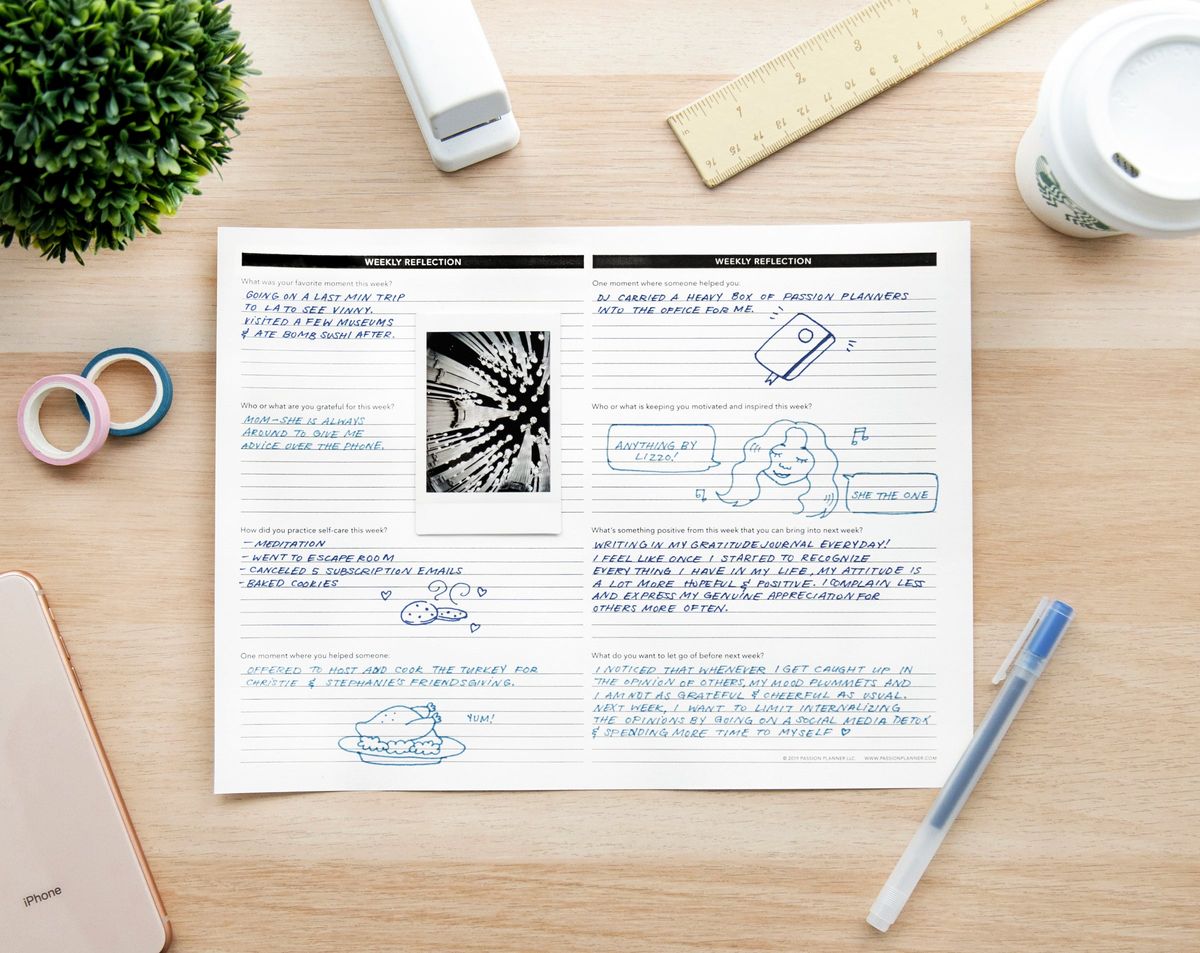 WEEKLY REFLECTION
What was your favorite moment this week?
GOING ON A LAST MIN TRIP
TO LA TO SEE VINNY.
VISITED A FEW MUSEUMS
& ATE BOMB SUSHI AFTER.
Who or what are you grateful for this week?
MOM - SHE IS ALWAYS
AROUND TO GIVE ME
ADVICE OVER THE PHONE.
How did you practice self-care this week?
- MEDITATION
- WENT TO ESCAPE ROOM
- CANCELED 5 SUBSCRIPTION EMAILS
- BAKED COOKIES
One moment where you helped someone:
OFFERED TO HOST AND COOK THE TURKEY FOR
CHRISTIE & STEPHANIE'S FRIENDSGIVING.
YUM!
WEEKLY REFLECTION
One moment where someone helped you:
DJ CARRIED A HEAVY BOX OF PASSION PLANNERS
INTO THE OFFICE FOR ME.
Who or what is keeping you motivated and inspired this week?
ANYTHING BY
LIZZO!
SHE THE ONE
What's something positive from this week that you can bring into next week?
WRITING IN MY GRATITUDE JOURNAL EVERYDAY!
I FEEL LIKE ONCE I STARTED TO RECOGNIZE
EVERYTHING I HAVE IN MY LIFE, MY ATTITUDE IS
A LOT MORE HOPEFUL & POSITIVE. I COMPLAIN LESS
AND EXPRESS MY GENUINE APPRECIATION FOR
OTHERS MORE OFTEN.
What do you want to let go of before next week?
I NOTICED THAT WHENEVER I GET CAUGHT UP IN
THE OPINION OF OTHERS, MY MOOD PLUMMETS AND
I AM NOT AS GRATEFUL & CHEERFUL AS USUAL.
NEXT WEEK, I WANT TO LIMIT INTERNALIZING
THE OPINIONS BY GOING ON A SOCIAL MEDIA DETOX
& SPENDING MORE TIME TO MYSELF ♡
© 2019 PASSION PLANNER LLC. WWW.PASSIONPLANNER.COM
iPhone
in 1 2 3 4
16 15 14 13 12 10 9 8 6